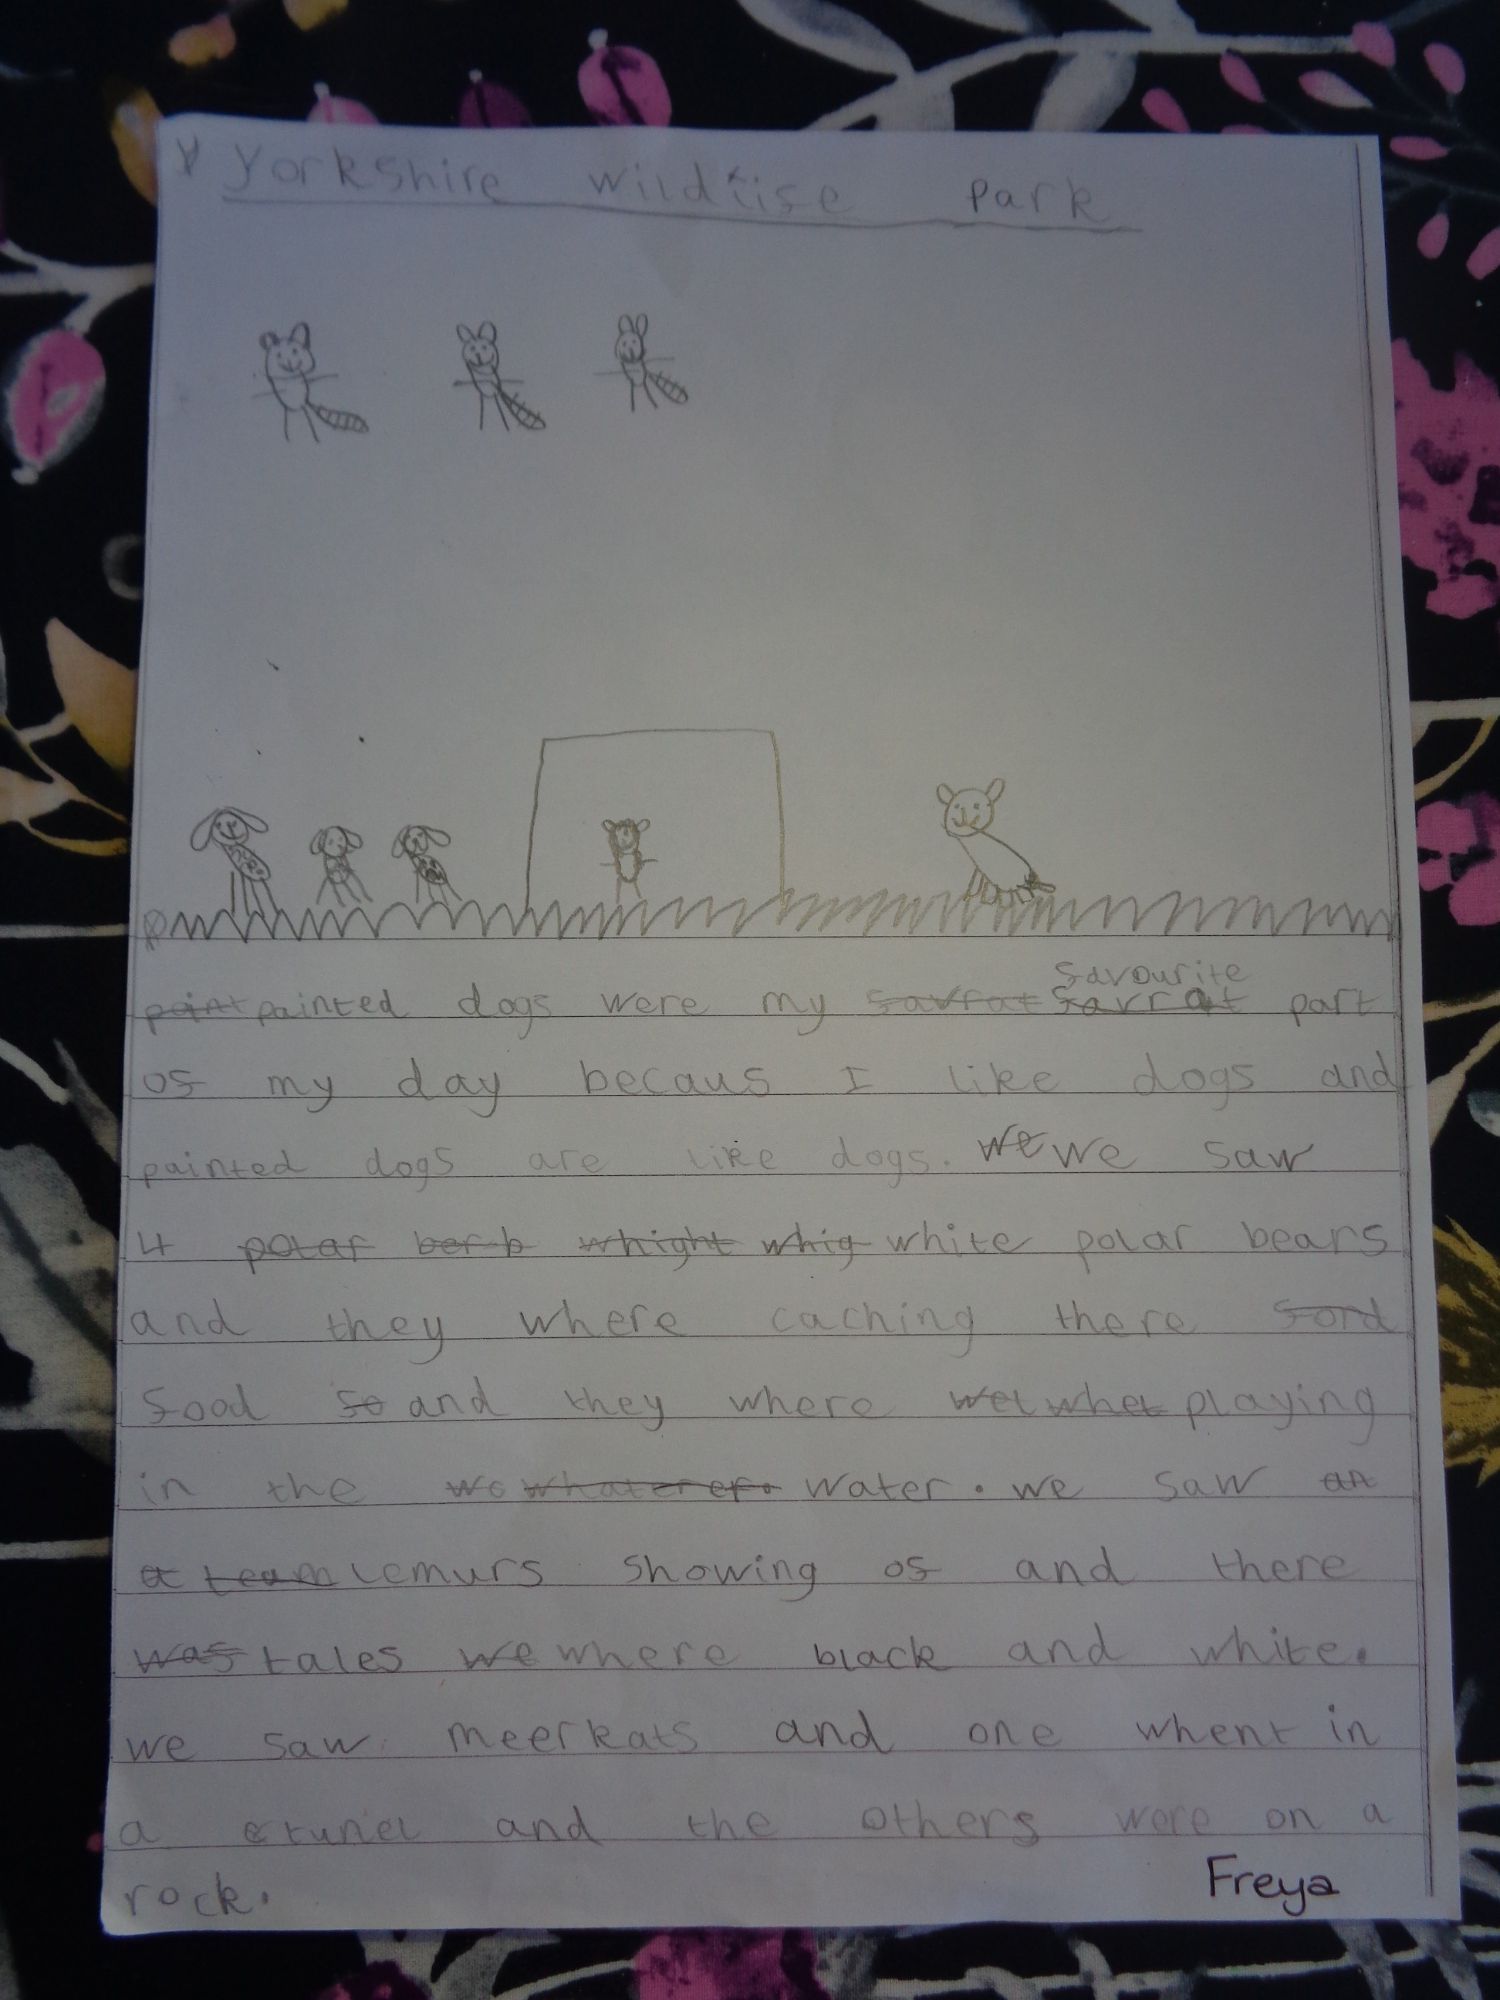 Y Yorkshire wildlife park
favourite
paint painted dogs were my favrat favrat part
of my day becaus I like dogs and
painted dogs are like dogs. we we saw
4 polar ber b whight whig white polar bears
and they where caching there ford
food fo and they where wet whet playing
in the wo whaterer. water. we saw an
a team lemurs showing of and there
was tales we where black and white.
we saw meerkats and one whent in
a tunel and the others were on a
rock.
Freya